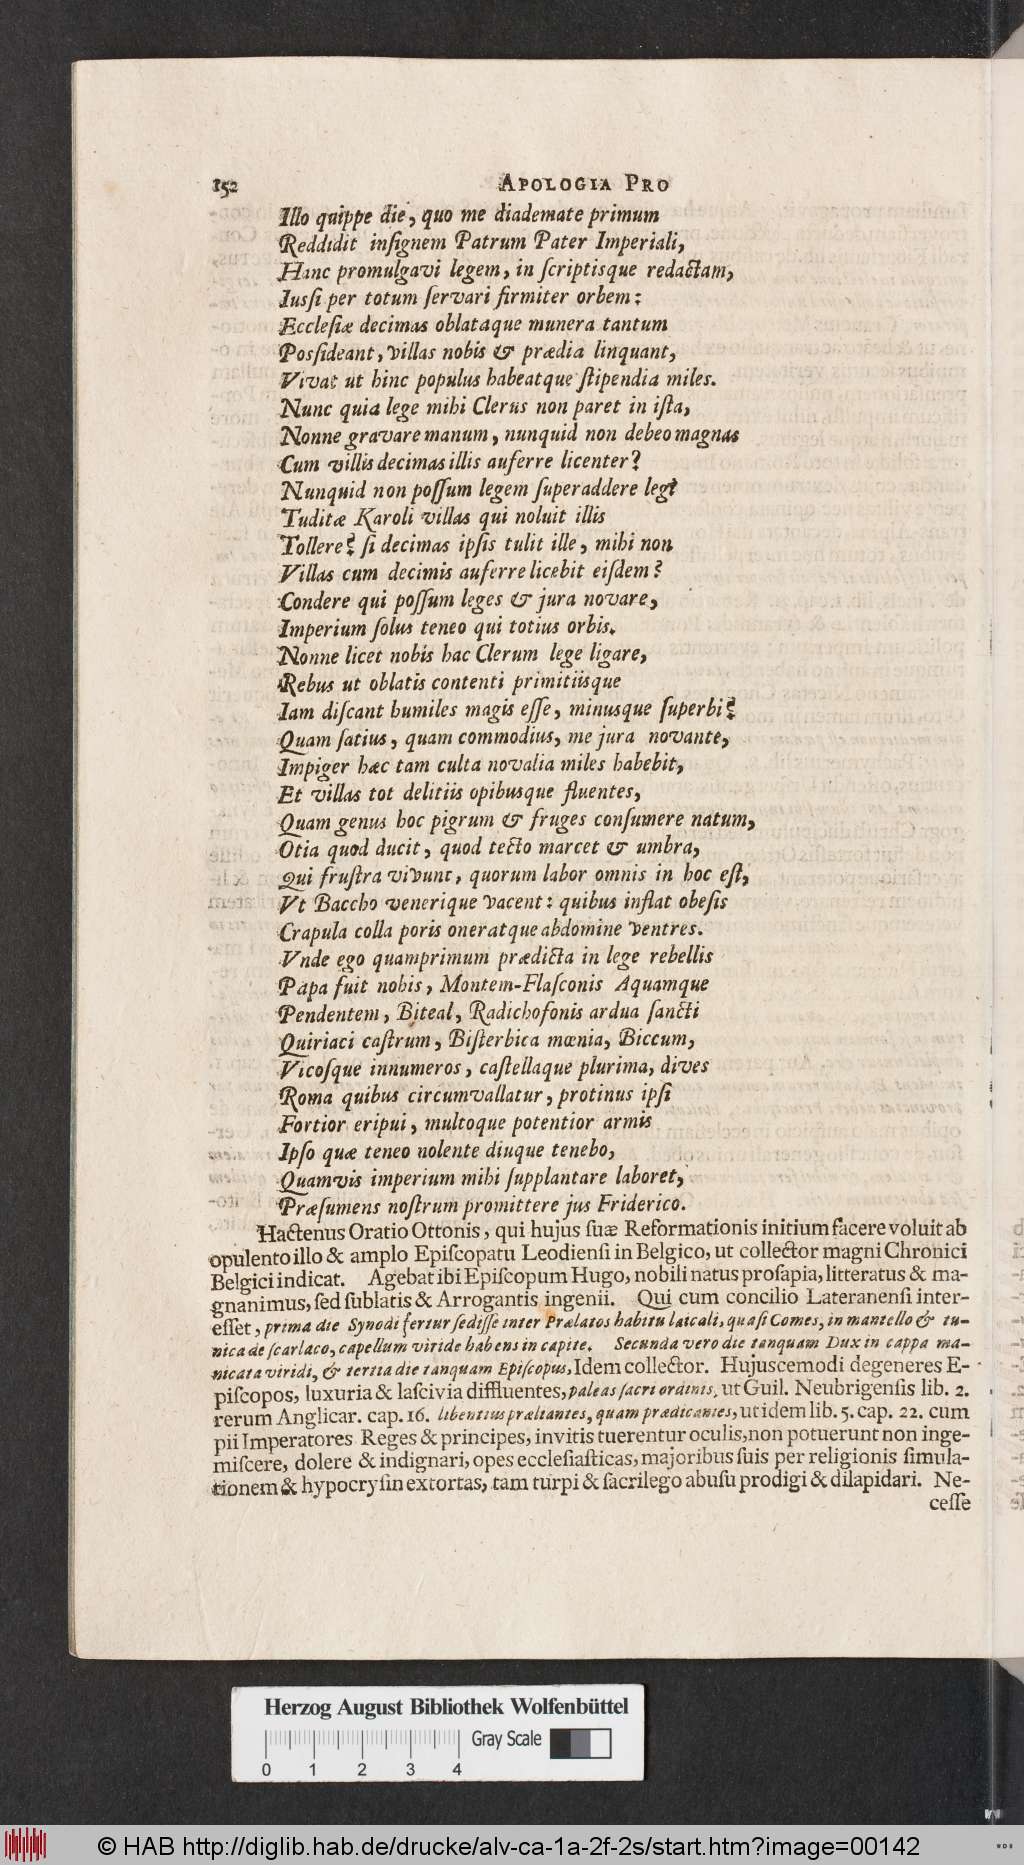 152 APOLOGIA PRO
Illo quippe die, quo me diademate primum
Reddidit inſignem Patrum Pater Imperiali,
Hanc promulgavi legem, in ſcriptisque redactam,
Iusſi per totum ſervari firmiter orbem:
Eccleſiæ decimas oblataque munera tantum
Posſideant, villas nobis & prædia linquant,
Vivat ut hinc populus habeatque ſtipendia miles.
Nunc quia lege mihi Clerus non paret in iſta,
Nonne gravare manum, nunquid non debeo magnas
Cum villis decimas illis auferre licenter?
Nunquid non poſſum legem ſuperaddere legi
Tuditæ Karoli villas qui noluit illis
Tollere? ſi decimas ipſis tulit ille, mihi non
Villas cum decimis auferre licebit eiſdem?
Condere qui poſſum leges & jura novare,
Imperium ſolus teneo qui totius orbis.
Nonne licet nobis hac Clerum lege ligare,
Rebus ut oblatis contenti primitiisque
Iam diſcant humiles magis eſſe, minusque ſuperbi?
Quam ſatius, quam commodius, me jura novante,
Impiger hæc tam culta novalia miles habebit,
Et villas tot delitiis opibusque fluentes,
Quam genus hoc pigrum & fruges conſumere natum,
Otia quod ducit, quod tecto marcet & umbra,
Qui fruſtra vivunt, quorum labor omnis in hoc eſt,
Vt Baccho venerique vacent: quibus inflat obeſis
Crapula colla poris oneratque abdomine ventres.
Vnde ego quamprimum prædicta in lege rebellis
Papa fuit nobis, Montem-Flaſconis Aquamque
Pendentem, Biteal, Radichofonis ardua ſancti
Quiriaci caſtrum, Biſterbica mœnia, Biccum,
Vicoſque innumeros, caſtellaque plurima, dives
Roma quibus circumvallatur, protinus ipſi
Fortior eripui, multoque potentior armis
Ipſo quæ teneo nolente diuque tenebo,
Quamvis imperium mihi ſupplantare laboret,
Præſumens noſtrum promittere jus Friderico.
Hactenus Oratio Ottonis, qui hujus ſuæ Reformationis initium facere voluit ab
opulento illo & amplo Epiſcopatu Leodienſi in Belgico, ut collector magni Chronici
Belgici indicat. Agebat ibi Epiſcopum Hugo, nobili natus proſapia, litteratus & ma-
gnanimus, ſed ſublatis & Arrogantis ingenii. Qui cum concilio Lateranenſi inter-
eſſet, prima die Synodi fertur ſediſſe inter Prælatos habitu laicali, quaſi Comes, in mantello & tu-
nica de ſcarlaco, capellum viride habens in capite. Secunda vero die tanquam Dux in cappa ma-
nicata viridi, & tertia die tanquam Epiſcopus, Idem collector. Hujuscemodi degeneres E-
piſcopos, luxuria & laſcivia diffluentes, paleas ſacri ordinis, ut Guil. Neubrigenſis lib. 2.
rerum Anglicar. cap. 16. libentius præliantes, quam prædicantes, ut idem lib. 5. cap. 22. cum
pii Imperatores Reges & principes, invitis tuerentur oculis, non potuerunt non inge-
miſcere, dolere & indignari, opes eccleſiaſticas, majoribus ſuis per religionis ſimula-
tionem & hypocryſin extortas, tam turpi & ſacrilego abuſu prodigi & dilapidari. Ne-
ceſſe
Herzog August Bibliothek Wolfenbüttel
Gray Scale
0 1 2 3 4
© HAB http://diglib.hab.de/drucke/alv-ca-1a-2f-2s/start.htm?image=00142